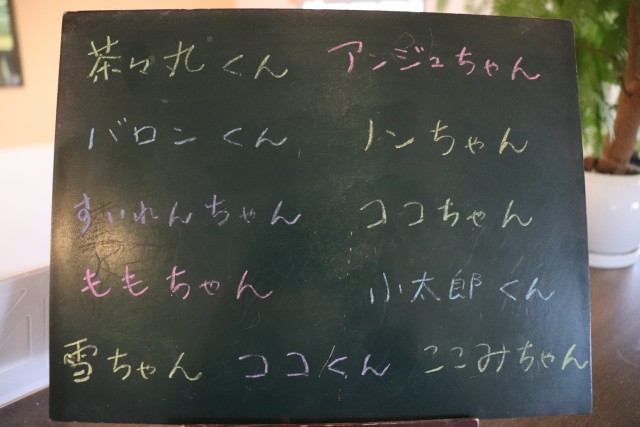 茶々丸くん アンジュちゃん
バロンくん ノンちゃん
すいれんちゃん ココちゃん
ももちゃん 小太郎くん
雪ちゃん ココくん ここみちゃん